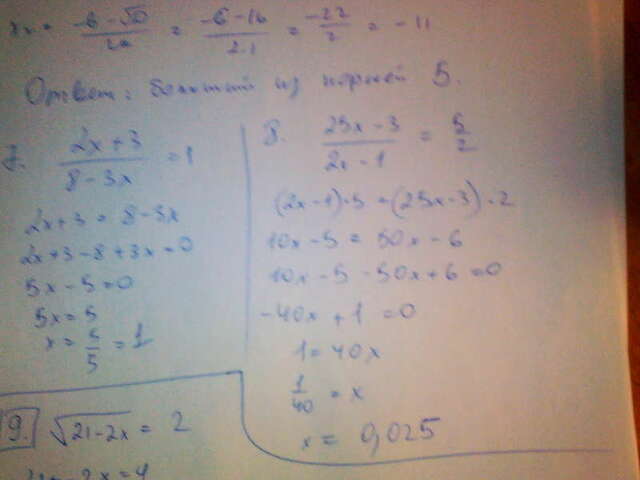 x₂ = (-b-√D)/2a = (-6-16)/2·1 = -22/2 = -11
Ответ: больший из корней 5.
7. (2x+3)/(8-3x) = 1
2x+3 = 8-3x
2x+3-8+3x=0
5x-5=0
5x=5
x = 5/5 = 1
8. (25x-3)/(2x-1) = 5/2
(2x-1)·5 = (25x-3)·2
10x-5 = 50x-6
10x-5-50x+6=0
-40x+1=0
1=40x
1/40 = x
x = 0,025
9. √(21-2x) = 2
21-2x=4